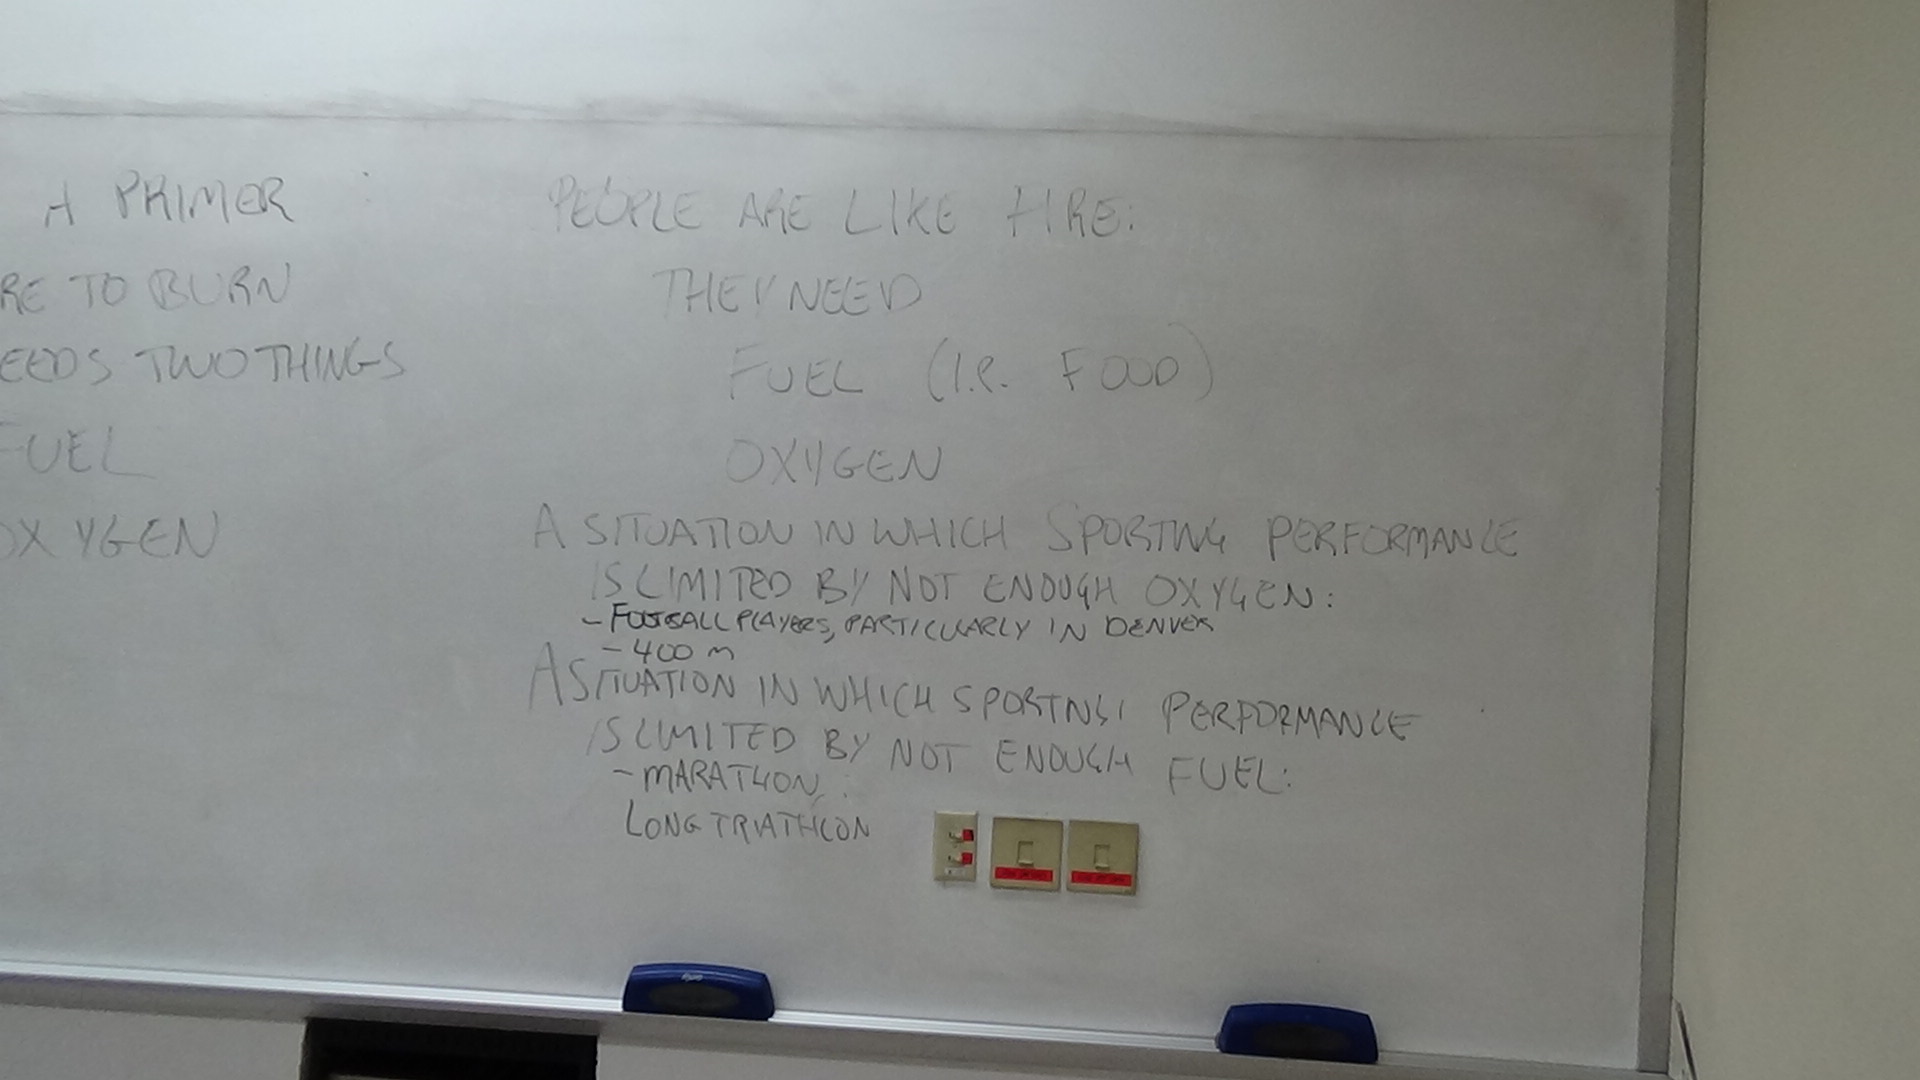 A PRIMER
RE TO BURN
EEDS TWO THINGS
FUEL
OXYGEN
PEOPLE ARE LIKE FIRE:
THEY NEED
FUEL (I.e. FOOD)
OXYGEN
A SITUATION IN WHICH SPORTING PERFORMANCE
IS LIMITED BY NOT ENOUGH OXYGEN:
- FOOTBALL PLAYERS, PARTICULARLY IN DENVER
- 400 m
A SITUATION IN WHICH SPORTING PERFORMANCE
IS LIMITED BY NOT ENOUGH FUEL:
- MARATHON
LONG TRIATHLON